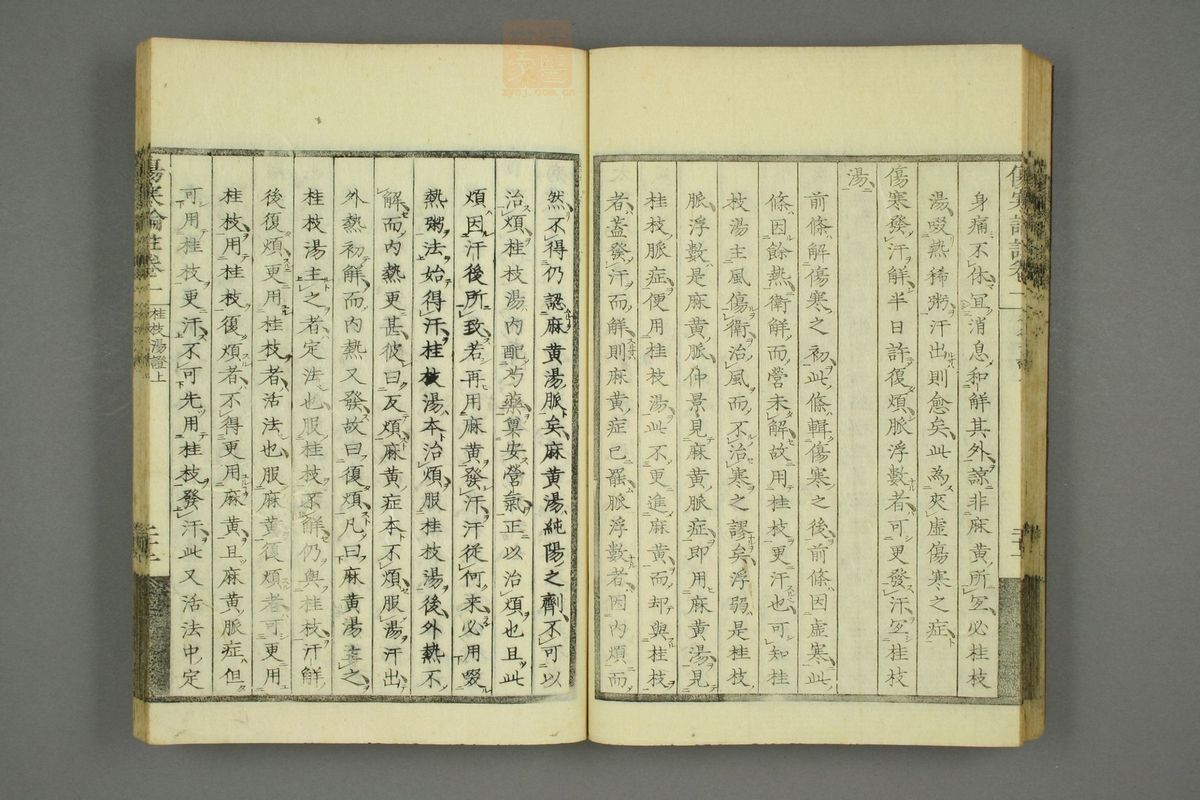 身痛不休宜消息和解其外諒非麻黄所宜必桂枝
湯啜熱稀粥汗出則愈矣此為夾虛傷寒之症
傷寒發汗解半日許復煩脈浮數者可更發汗宜桂枝
湯
前條解傷寒之初此條輯傷寒之後前條因虛寒此
條因餘熱衛解而營未解故用桂枝更汗也可知桂
枝湯主風傷衛治風而不治寒之謬矣浮弱是桂枝
脈浮數是麻黄脈仲景見麻黄脈症即用麻黄湯見
桂枝脈症便用桂枝湯此不更進麻黄而却與桂枝
者蓋發汗而解則麻黄症已罷脈浮數者因內煩而
然不得仍認麻黄湯脈矣麻黄湯純陽之劑不可以
治煩桂枝湯內配芍藥奠安營氣正以治煩也且此
煩因汗後所致若再用麻黄發汗汗從何來必用啜
熱粥法始得汗桂枝湯本治煩服桂枝湯後外熱不
解而內熱更甚彼曰反煩麻黄症本不煩服湯汗出
外熱初解而內熱又發故曰復煩凡曰麻黄湯主之
桂枝湯主之者定法也服桂枝不解仍與桂枝汗解
後復煩更用桂枝者活法也服麻黄復煩者可更用
桂枝用桂枝復煩者不得更用麻黄且麻黄脈症但
可用桂枝更汗不可先用桂枝發汗此又活法中定
傷寒論註卷一
桂枝湯證上